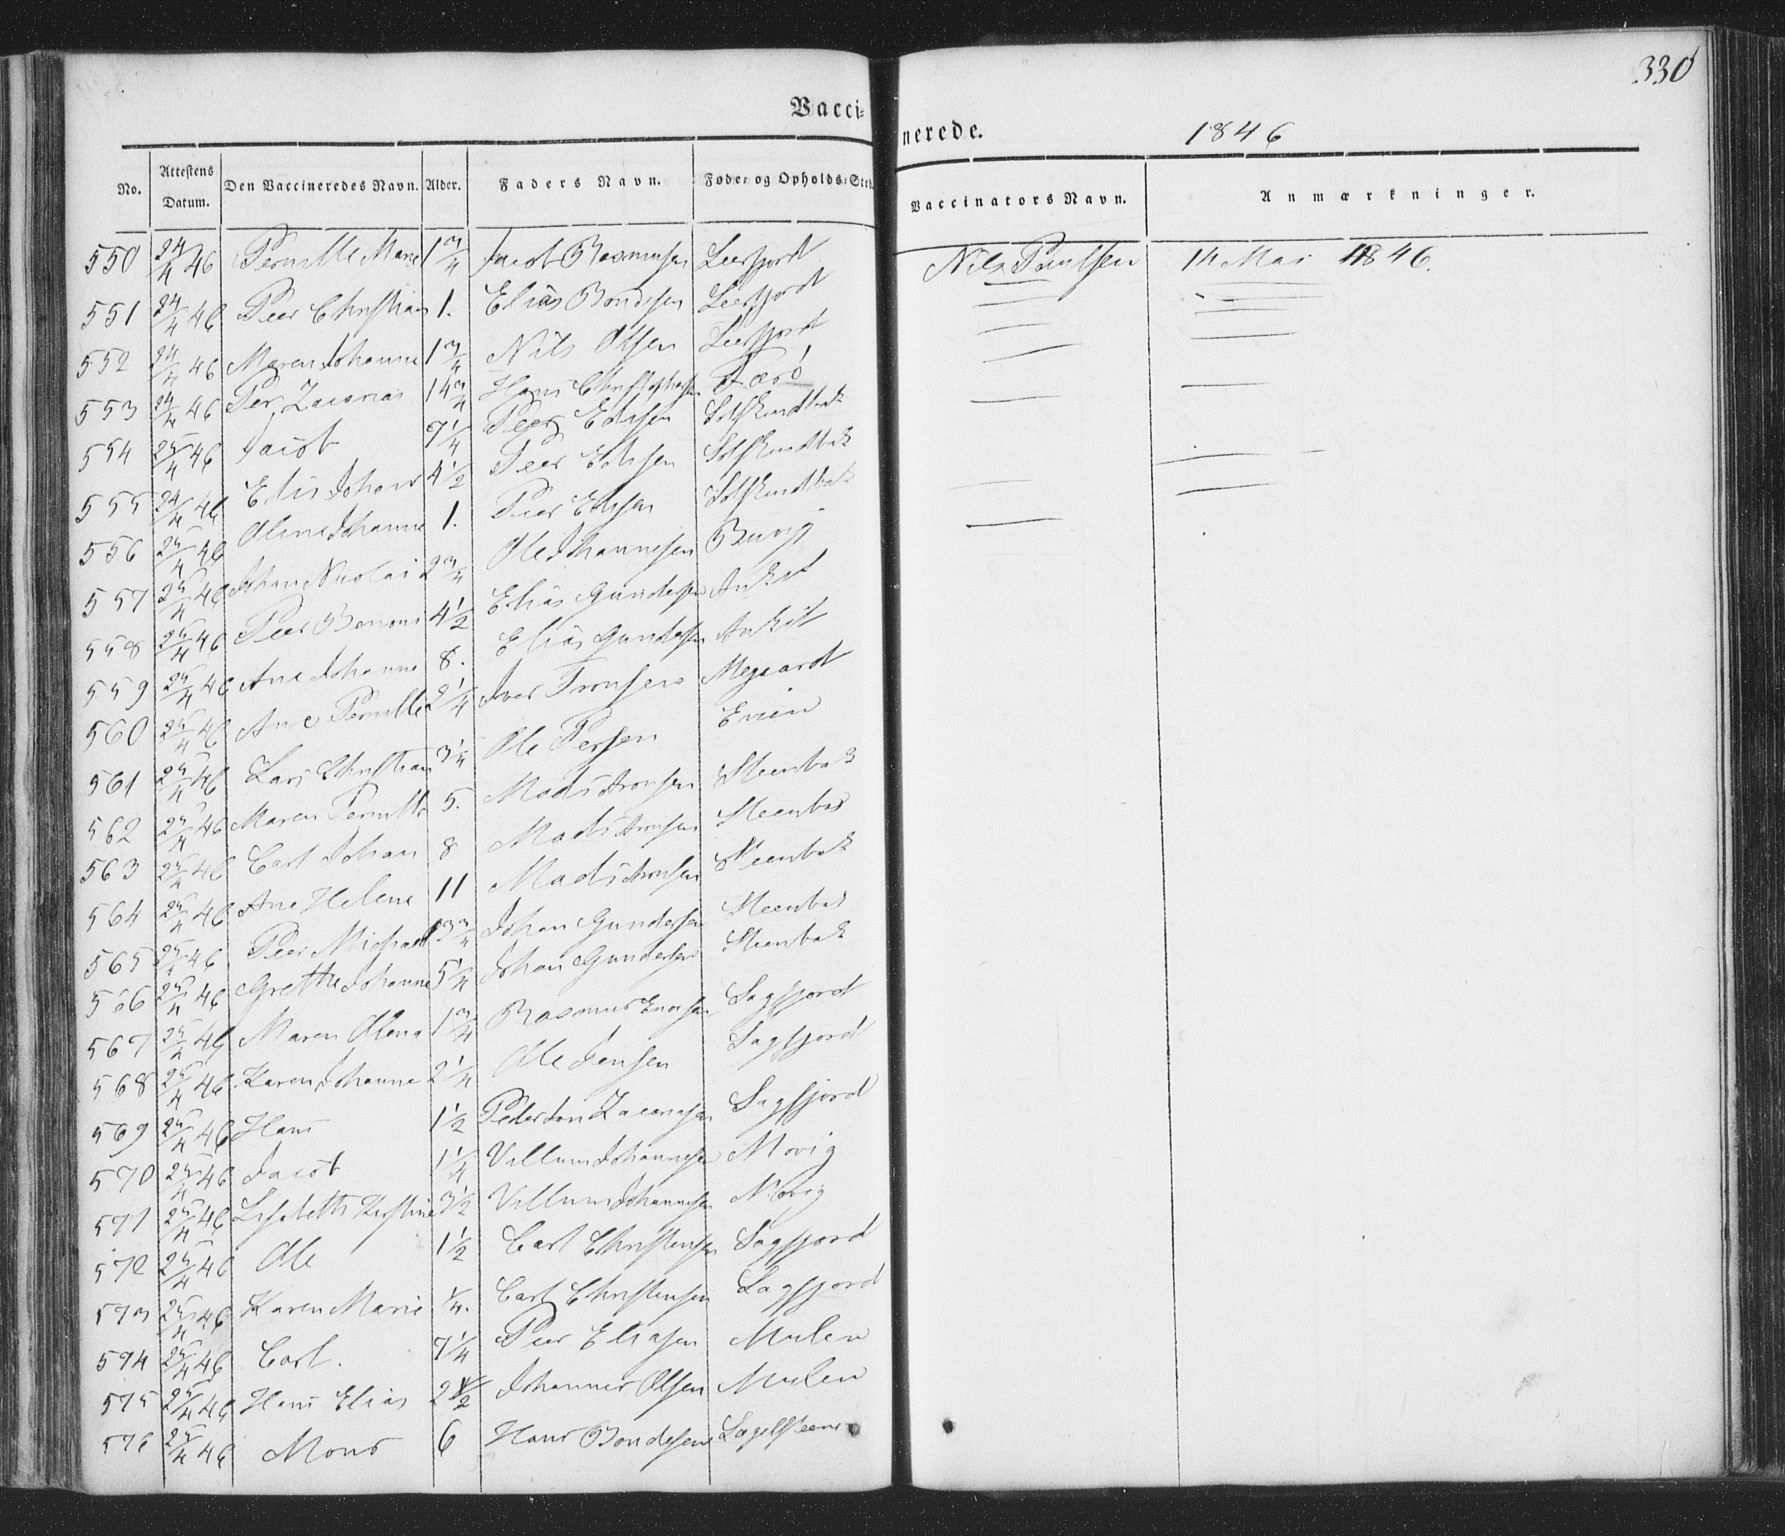 330
Vaccinerede. 1846
No. Attestens Datum. Den Vaccineredes Navn. Alder. Faders Navn. Føde- og Opholds-Sted. Vaccinators Navn. Anmærkninger.
550 24/4 46 Pernille Marie 1 3/4 Jacob Rasmusen Leerfjord Nils Paulsen 14 Mai 1846.
551 24/4 46 Peer Christian 1. Elias Bondesen Leerfjord
552 24/4 46 Maren Johanne 1 3/4 Nils Olsen Leerfjord
553 24/4 46 Per Zacarias 14 3/4 Hans Christophersen
554 25/4 46 Jacob 7 1/4 Peer
555 24/4 46 Johan 4 1/2 Peer
556 25/4 46 Oline Johanne 1. Peer
557 25/4 46 Johan Nicolai 2 3/4 Ole Johannesen Buvig
558 25/4 46 Peer Benoni 4 1/2 Elias Gundersen
559 25/4 46 Ane Johanne 8. Elias Gundersen
560 25/4 46 Ane Pernille 2 1/4 Iver Meyaardt
561 25/4 46 Lars Christian 3 1/4 Ole Persen Evien
562 25/4 46 Maren Pernille 5. Mads Steenbak
563 25/4 46 Carl Johan 8 Mads Steenbak
564 25/4 46 Ane Helene 11 Mads Steenbak
565 25/4 46 Peer Michael 13 3/4 Johan Gundersen Steenbak
566 25/4 46 Grethe Johanne 5 1/4 Johan Gundersen Steenbak
567 25/4 46 Maren Olena 1 3/4 Rasmus Sagfjord
568 25/4 46 Karen Johanne 2 1/4 Ole Jensen Sagfjord
569 25/4 46 Hans 1 1/2 Peder Sagfjord
570 25/4 46 Jacob 1 1/4 Villum Johannesen Movig
571 25/4 46 Lisabeth Kistine 3 1/2 Villum Johannesen Movig
572 25/4 46 Ole 1 1/2 Carl Christensen Sagfjord
573 25/4 46 Karen Marie 1/4. Carl Christensen Sagfjord
574 25/4 46 Carl. 7 1/4 Peer Eliasen Mulen
575 25/4 46 Hans Elias 2 1/2 Johannes Olsen Mulen
576 25/4 46 Mons 6 Hans Bondesen